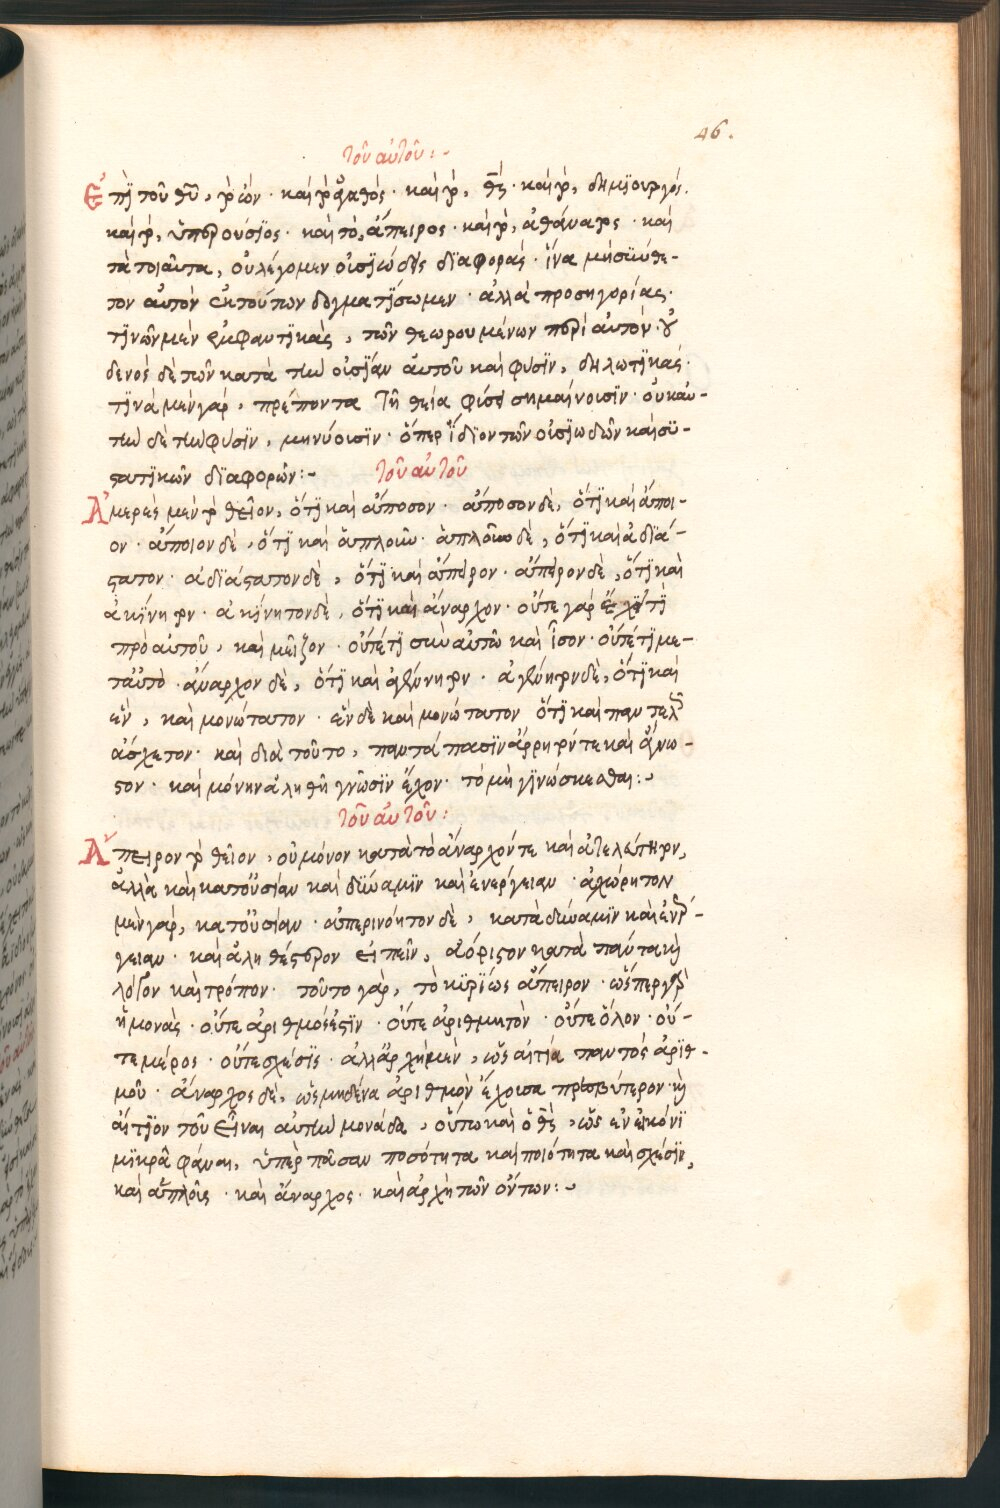 46.
τοῦ αὐτοῦ:-
Ἐπῒ τοῦ θῦ, τὸ ὤν· καὶ τὸ ἀγαθός· καὶ τὸ, θς· καὶ τὸ, δημϊουργός·
καὶ τὸ, ὑπερούσϊος· καὶ τὸ, ἄπειρος· καὶ τὸ, ἀθάνατος· καὶ
τὰ τοιαῦτα, οὐ λέγομεν οὐσϊώδεις δϊαφοράς· ἵνα μὴ σϋύθε-
τον αὐτὸν ἐκ τούτων δογματΐσωμεν· ἀλλὰ προσηγορίας·
τϊνῶν μὲν ἐμφαντϊκὰς, τῶν θεωρουμένων περὶ αὐτὸν· οὐ
δενὸς δὲ τῶν κατὰ τὴν οὐσΐαν αὐτοῦ καὶ φύσϊν, δηλωτϊκάς·
τϊνὰ μὲν γάρ, πρέποντα τῆ θεία φύσει σημαίνουσϊν· οὐκ αὐ-
τὴν δὲ τὴν φύσϊν, μηνύουσϊν· ὅπερ ἴδϊον τῶν οὐσϊωδῶν καὶ συ-
στατϊκῶν δϊαφορῶν:- τοῦ αὐτοῦ
Ἀμερὲς μὲν τὸ θεῖον, ὅτϊ καὶ ἄποσον· ἄποσον δὲ, ὅτϊ καὶ ἄποι-
ον· ἄποιον δὲ, ὅτϊ καὶ ἁπλοῦν· ἁπλοῦν δὲ, ὅτϊ καὶ ἀδϊά-
στατον· ἀδϊάστατον δὲ, ὅτϊ καὶ ἄπειρον· ἄπειρον δὲ, ὅτϊ καὶ
ἀκΐνητον· ἀκΐνητον δὲ, ὅτϊ καὶ ἄναρχον· οὔτε γὰρ ἔχει τϊ
πρὸ αὐτοῦ, καὶ μεῖζον· οὔτέ τϊ σὺν αὐτῶ καὶ ἶσον· οὔτέ τϊ με-
ταὐτὸ· ἄναρχον δὲ, ὅτϊ καὶ ἀγένητον· ἀγένητον δὲ, ὅτϊ καὶ
ἓν, καὶ μονώτατον· ἓν δὲ καὶ μονώτατον ὅτϊ καὶ παντελῶς
ἄσχετον· καὶ διὰ τοῦτο, παντάπασϊν ἄρρητόν τε καὶ ἄγνω-
στον· καὶ μόνην ἀληθῆ γνῶσϊν ἔχον· τὸ μὴ γϊνώσκεσθαι:~
τοῦ αὐτοῦ:
Ἄπειρον τὸ θεῖον, οὐ μόνον κατὰ τὸ ἄναρχόν τε καὶ ἀτελεύτητον,
ἀλλὰ καὶ κατ' οὐσίαν καὶ δϋναμϊν καὶ ἐνέργειαν· ἀχώρητον
μὲν γὰρ, κατ' οὐσίαν· ἀπερινόητον δὲ, κατὰ δύναμϊν καὶ ἐνέρ-
γειαν· καὶ ἀληθέστερον εἰπεῖν, ἀόριστον κατὰ πάντα καὶ
λόγον καὶ τρόπον· τοῦτο γὰρ, τὸ κϋρΐως ἄπειρον· ὥσπερ γὰρ
ἡ μονὰς· οὔτε ἀριθμός ἐστϊν· οὔτε ἀριθμητὸν· οὔτε ὅλον· οὔ-
τε μέρος· οὔτε σχέσϊς· ἀλλ' ἀρχὴ μὲν, ὡς αἰτία παντὸς ἀριθ-
μοῦ· ἄναρχος δὲ, ὡς μηδένα ἀριθμὸν ἔχουσα πρεσβύτερον καὶ
αἴτϊον τοῦ εἶναι αὐτὴν μονάδα, οὕτω καὶ ὁ θς, ὡς ἐν εἰκόνϊ
μϊκρᾶ φάναι, ὑπὲρ πᾶσαν ποσότητα καὶ ποιότητα καὶ σχέσϊν,
καὶ ἁπλοῦς· καὶ ἄναρχος· καὶ ἀρχὴ τῶν ὄντων:~